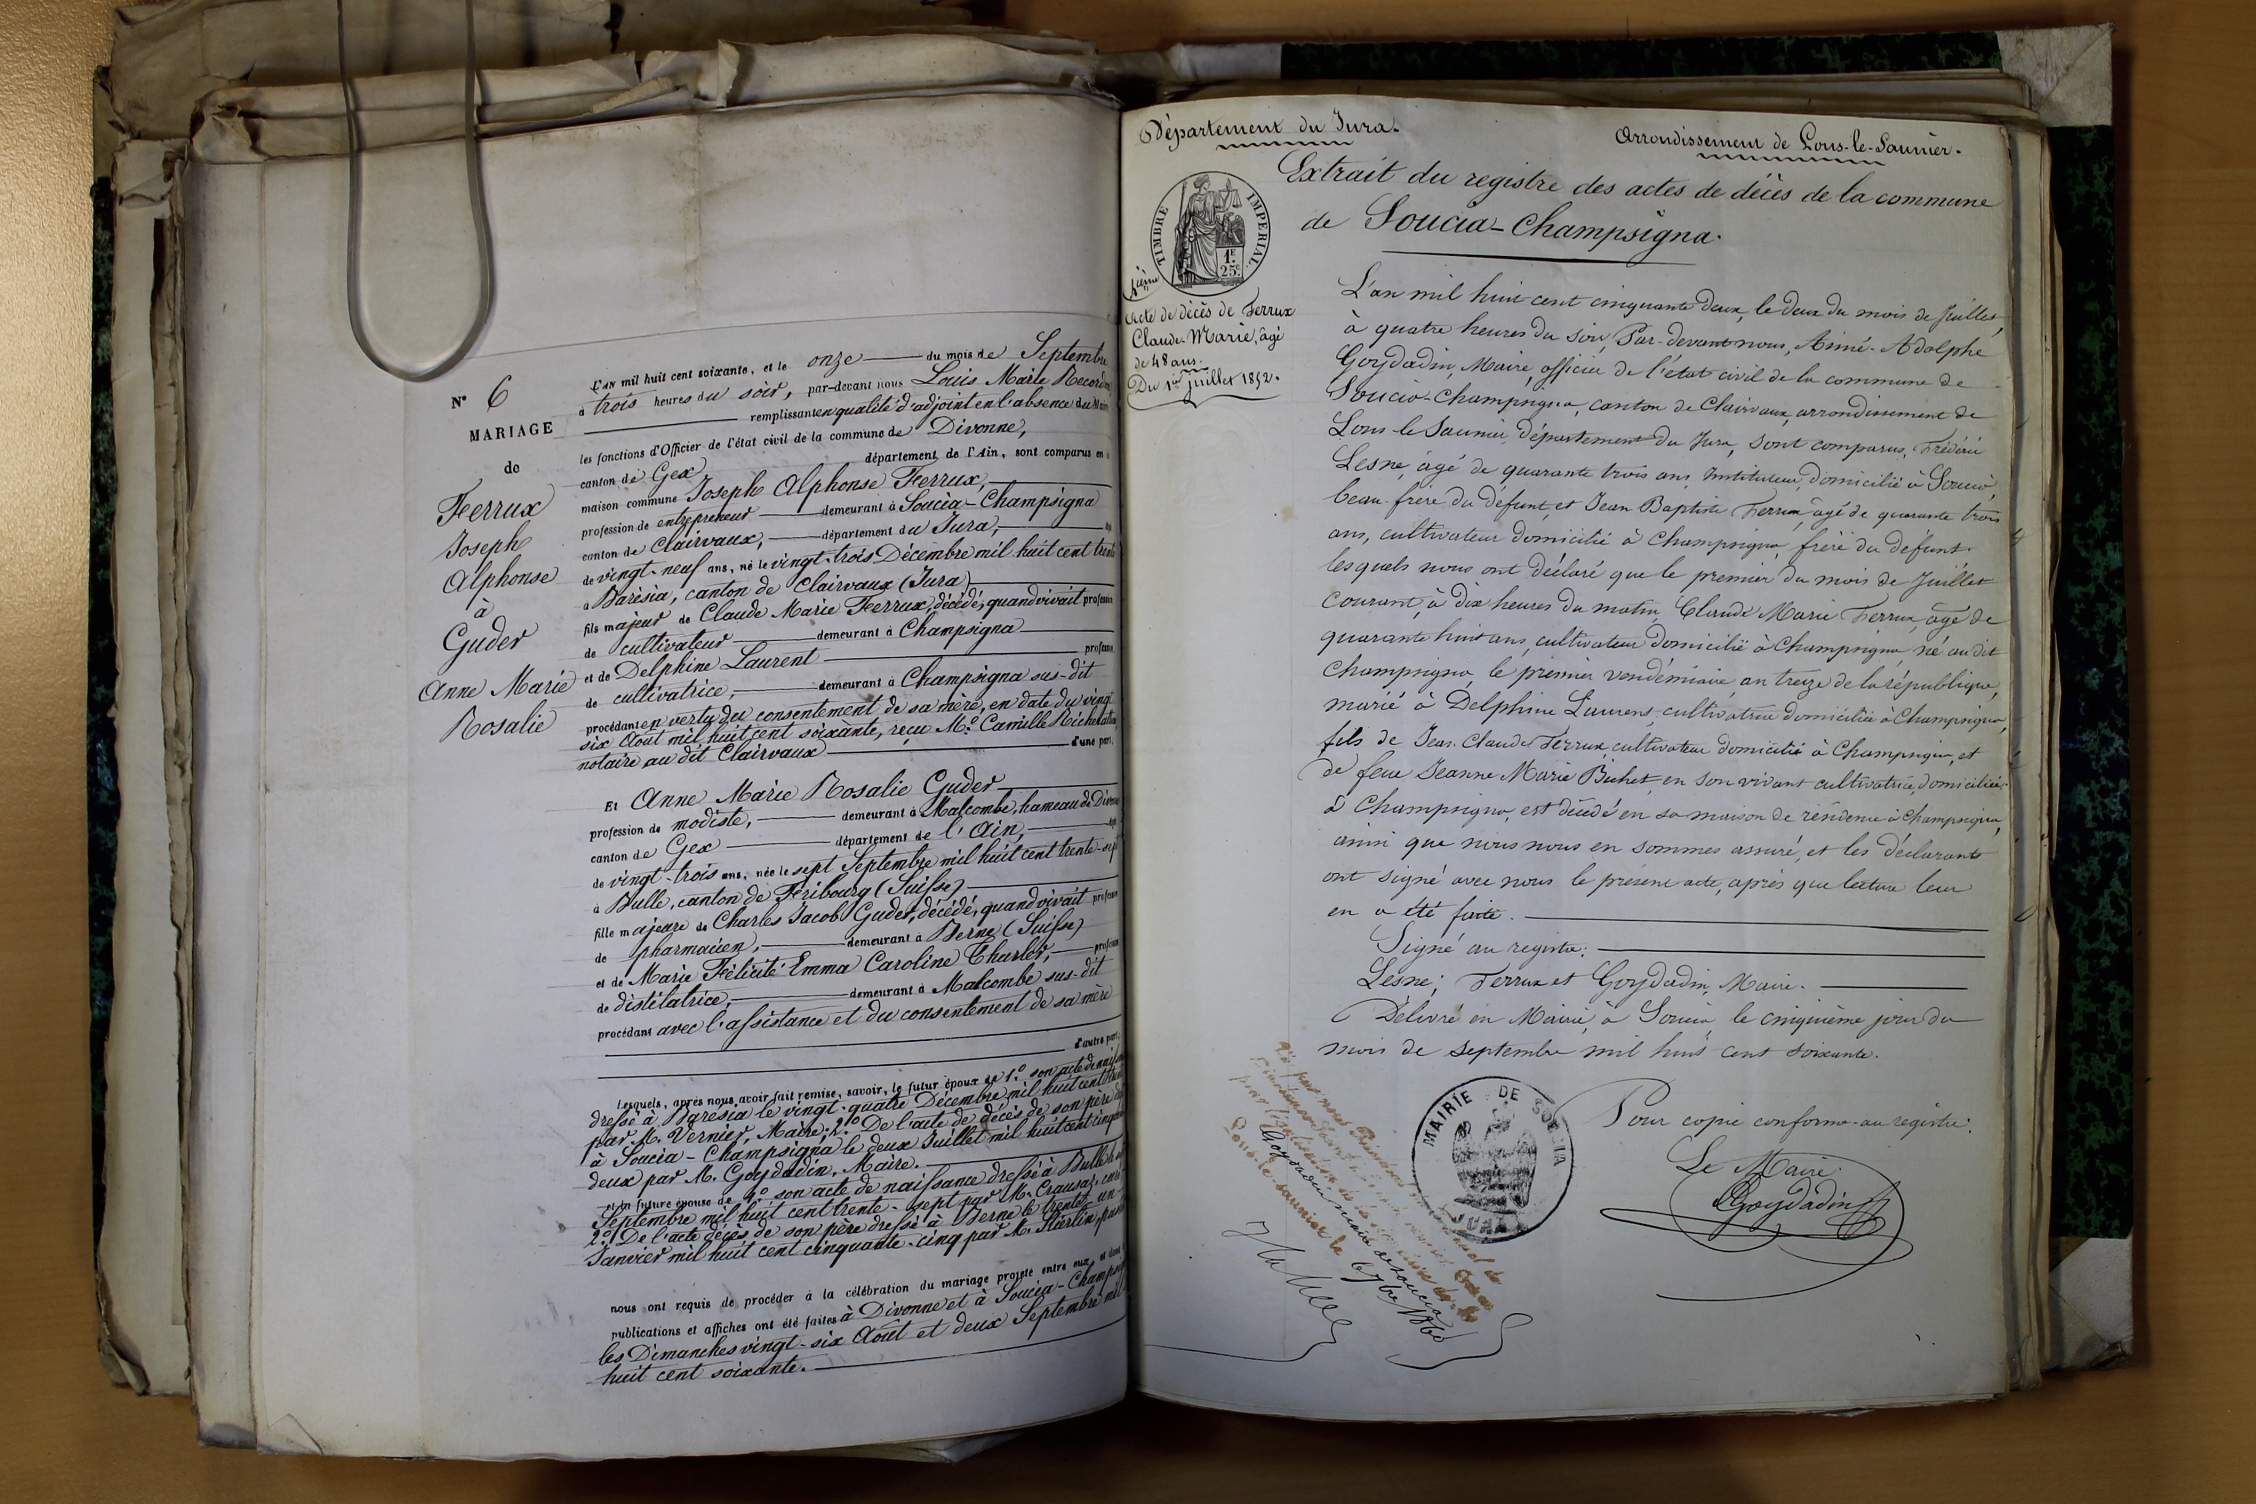 N° 6
MARIAGE
de
Ferrux
Joseph
Alphonse
à
Guder
Anne Marie
Rosalie
L'AN mil huit cent soixante, et le onze du mois de Septembre
à trois heures du soir, par-devant nous Louis Marie Recordon
remplissant en qualité d'adjoint en l'absence du Maire
les fonctions d'Officier de l'état civil de la commune de Divonne,
canton de Gex département de l'Ain, sont comparus en
maison commune Joseph Alphonse Ferrux,
profession de entrepreneur demeurant à Soucia-Champsigna
canton de Clairvaux, département du Jura,
de vingt-neuf ans, né le vingt-trois Décembre mil huit cent trente
à Barèsia, canton de Clairvaux (Jura)
fils majeur de Claude Marie Ferrux, décédé, quand vivait profession
de cultivateur demeurant à Champsigna
et de Delphine Laurent profession
de cultivatrice, demeurant à Champsigna sus-dit
procédant en vertu du consentement de sa mère, en date du vingt
six Août mil huit cent soixante, reçu M.e Camille
notaire au dit Clairvaux d'une part,
Et Anne Marie Rosalie Guder
profession de modiste, demeurant à Malcombe, hameau de Divonne
canton de Gex département de l'Ain,
de vingt-trois ans, née le sept Septembre mil huit cent trente-sept
à Bulle, canton de Fribourg (Suisse)
fille majeure de Charles Jacob Guder, décédé, quand vivait profession
de pharmacien, demeurant à Berne (Suisse)
et de Marie Félicité Emma Caroline Charles, profession
de distilatrice, demeurant à Malcombe sus-dit
procédant avec l'assistance et du consentement de sa mère
d'autre part,
Lesquels, après nous avoir fait remise, savoir, le futur époux de 1.° son acte de naissance
dressé à Baresia le vingt-quatre Décembre mil huit cent trente
par M. Vernier, Maire; 2.° De l'acte de décès de son père
à Soucia-Champsigna le deux Juillet mil huit cent cinquante
deux par M. Goydadin, Maire.
et la future épouse de 1.° son acte de naissance dressé à Bulle
Septembre mil huit cent trente-sept par M. Crausaz, curé
2.° De l'acte décès de son père dressé à Berne le trente un
Janvier mil huit cent cinquante-cinq par M. Stierlin,
nous ont requis de procéder à la célébration du mariage projeté entre eux, et dont
publications et affiches ont été faites à Divonne et à Soucia-Champsigna
les Dimanches vingt-six Août et deux Septembre mil
huit cent soixante.
Département du Jura.
Arrondissement de Lons-le-Saunier.
Extrait du registre des actes de décès de la commune
de Soucia-Champsigna.
TIMBRE IMPERIAL
1F
25c
Acte de décès de Ferrux
Claude-Marie, âgé
de 48 ans.
Du 1er juillet 1852.
L'an mil huit cent cinquante deux, le deux du mois de Juillet,
à quatre heures du soir, Par-devant nous, Aimé-Adolphe
Goydadin, Maire, officier de l'état civil de la commune de
Soucia-Champsigna, canton de Clairvaux, arrondissement de
Lons le Saunier, département du Jura, sont comparus, Frédéric
Lesne, âgé de quarante trois ans, Instituteur, domicilié à Soucia,
beau-frère du défunt, et Jean Baptiste Ferrux, âgé de quarante trois
ans, cultivateur domicilié à Champsigna, frère du défunt.
lesquels nous ont déclaré que le premier du mois de Juillet
courant, à dix heures du matin, Claude Marie Ferrux, âgé de
quarante huit ans, cultivateur domicilié à Champsigna, né au dit
Champsigna le premier vendémiaire an treize de la république,
marié à Delphine Laurent, cultivatrice domiciliée à Champsigna,
fils de Jean Claude Ferrux, cultivateur domicilié à Champsigna, et
de feue Jeanne Marie Bichet, en son vivant cultivatrice, domiciliée
à Champsigna, est décédé en sa maison de résidence à Champsigna,
ainsi que nous nous en sommes assuré, et les déclarants
ont signé avec nous le présent acte, après que lecture leur
en a été faite.
Signé au registre:
Lesne; Ferrux et Goydadin, Maire.
Délivré en Mairie, à Soucia, le cinquième jour du
mois de septembre mil huit cent soixante.
Pour copie conforme au registre.
Le Maire
Goydadin
MAIRIE DE SOUCIA
JURA
Vu par nous Président du tribunal de
pour légalisation de la signature de M.
Goydadin maire de Soucia
Lons-le-Saunier, le 6 7bre 1860